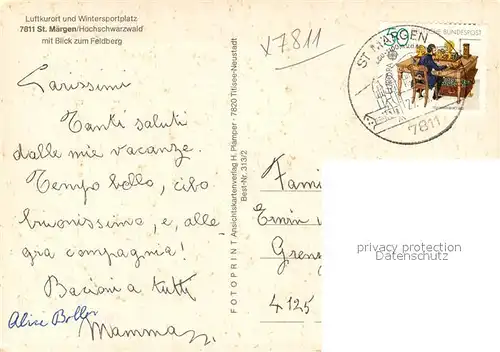 Luftkurort und Wintersportplatz
7811 St. Märgen/Hochschwarzwald
mit Blick zum Feldberg
x7811
ST. MÄRGEN
7811
BUNDESPOST
Carissimi
Tanti saluti
dalle mie vacanze.
Tempo bello, cibo
buonissimo, e, alle
gra compagnia!
Bacioni a tutti
Mamma
Alice Boller
FOTOPRINT Ansichtskartenverlag H. Plamper · 7820 Titisee-Neustadt
Best-Nr. 313/2
Fami
Erwin
Grens
4125
privacy protection
Datenschutz